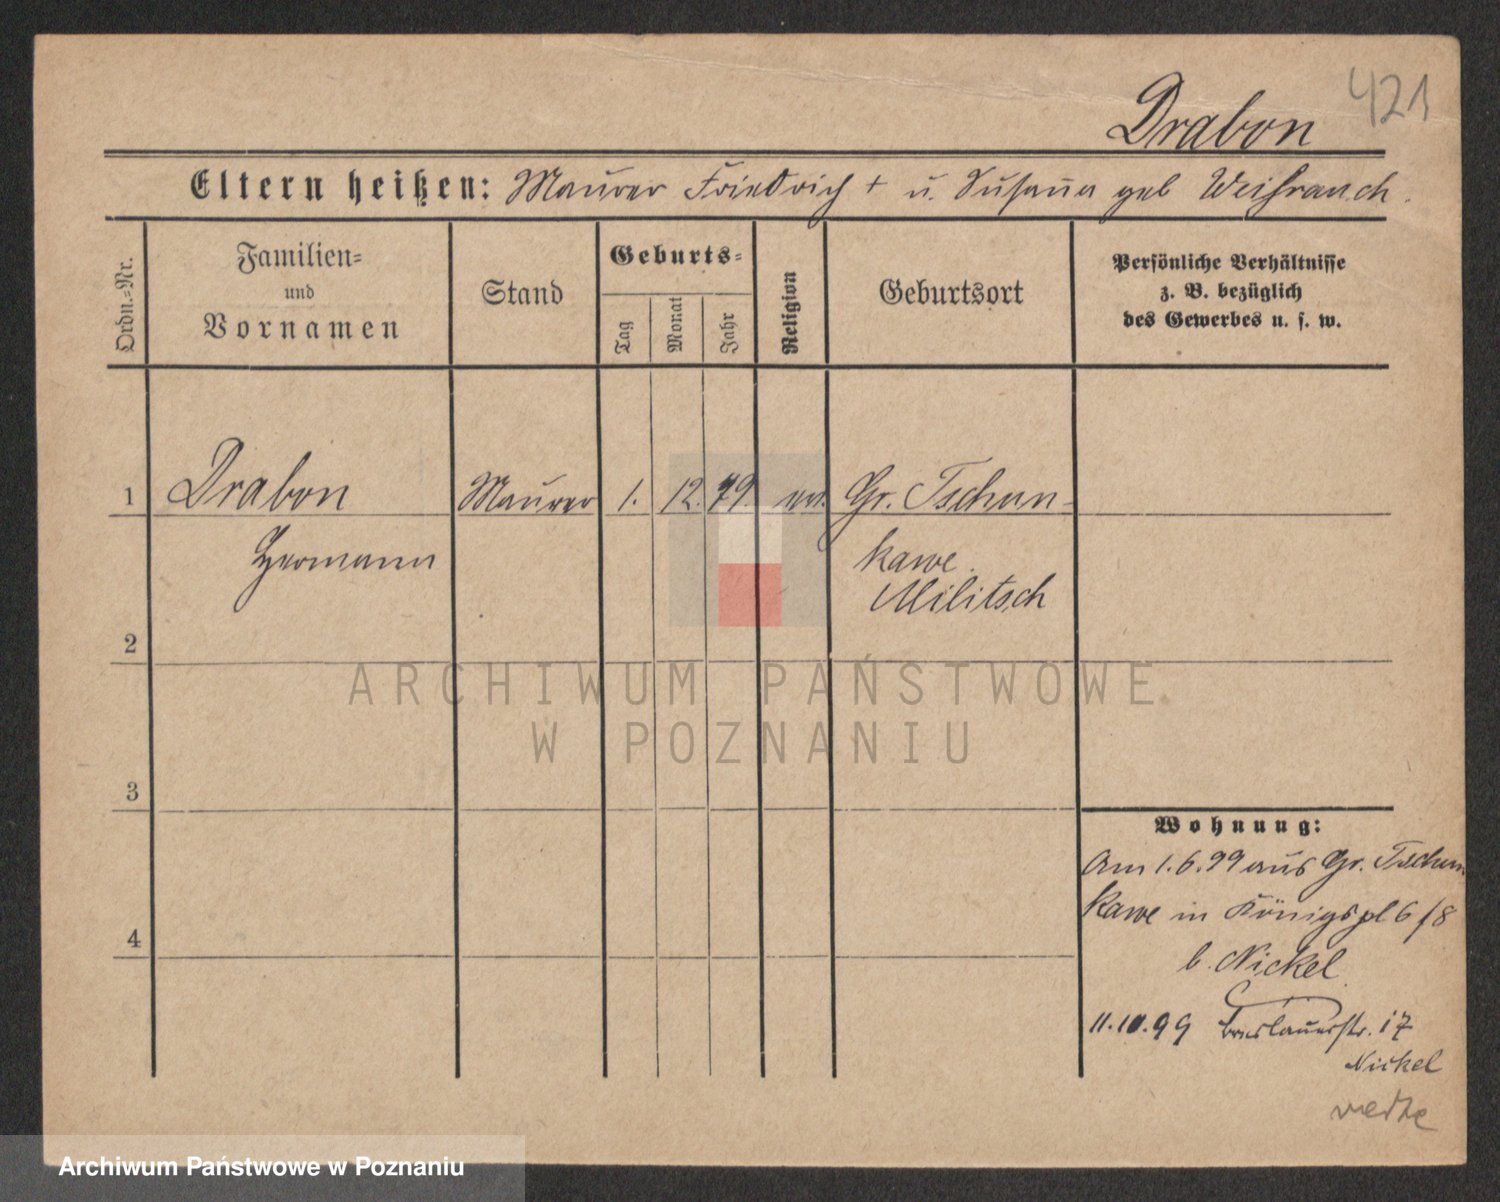 421
Drabon
Eltern heißen: Maurer Friedrich † u. Susanna geb Weihrauch.
Ordn.=Nr.
Familien=
und
Vornamen
Stand
Geburts=
Tag
Monat
Jahr
Religion
Geburtsort
Persönliche Verhältnisse
z. B. bezüglich
des Gewerbes u. s. w.
1 Drabon Maurer 1. 12. 79. ev. Gr. Tschun-
Hermann kawe.
Militsch
2
3
4
Wohnung:
Am 1.6.99 aus Gr. Tschun
kawe in Königspl 6/8
b. Nickel
11.10.99 Breslauerstr. 17
Nickel
ARCHIWUM PAŃSTWOWE
W POZNANIU
Archiwum Państwowe w Poznaniu